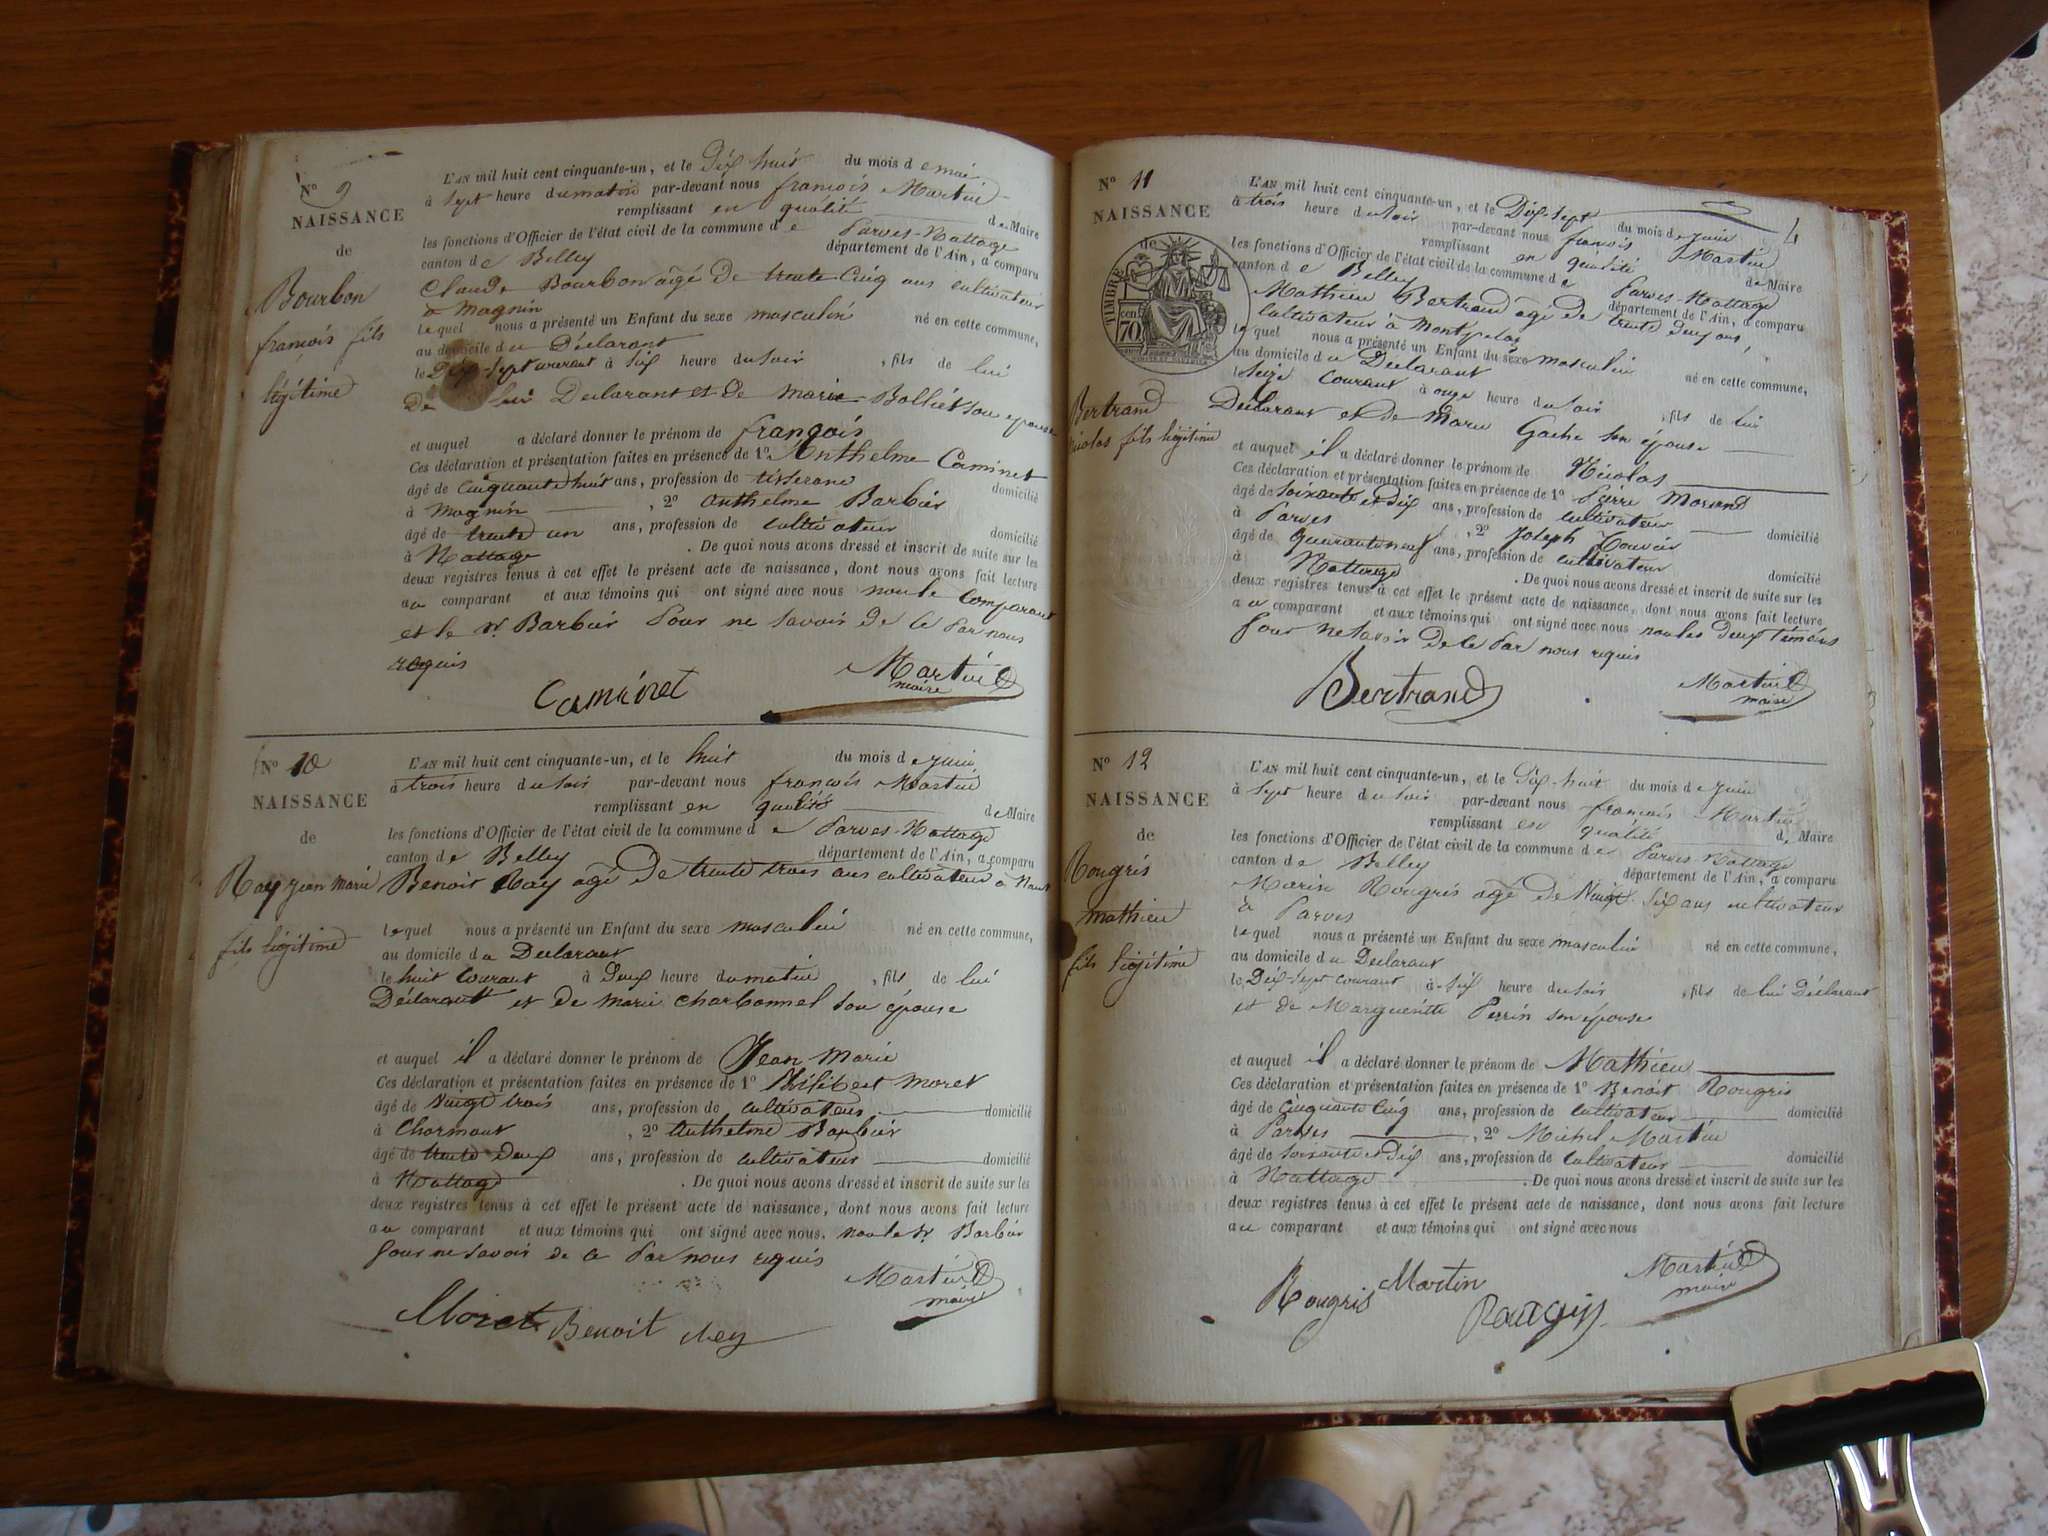 N° 9
NAISSANCE
de
Bourbon
françois fils
légitime
L'AN mil huit cent cinquante-un, et le Dix huit du mois de mai
à Sept heure du matin par-devant nous françois Martin
remplissant en qualité de Maire
les fonctions d'Officier de l'état civil de la commune de Parves-Nattage
canton de Belley département de l'Ain, a comparu
Claude Bourbon agé De trente Cinq ans cultivateur
a Magnin
lequel nous a présenté un Enfant du sexe masculin né en cette commune,
au domicile du Déclarant
le Dix-sept courant à Six heure du soir , fils de lui
De lui Declarant et De marie Bolliet son épouse
et auquel a déclaré donner le prénom de françois
Ces déclaration et présentation faites en présence de 1° Anthelme Caminet
âgé de Cinquante huit ans, profession de tisserand domicilié
à Magnin , 2° Anthelme Barbier
âgé de trente un ans, profession de cultivateur domicilié
à Nattage . De quoi nous avons dressé et inscrit de suite sur les
deux registres tenus à cet effet le présent acte de naissance, dont nous avons fait lecture
au comparant et aux témoins qui ont signé avec nous non le Comparant
et le Sr Barbier Pour ne savoir De ce Par nous
requis
Caminet
Martin
maire
N° 10
NAISSANCE
de
Ray jean Marie
fils légitime
L'AN mil huit cent cinquante-un, et le huit du mois de juin
à trois heure du soir par-devant nous françois Martin
remplissant en qualité de Maire
les fonctions d'Officier de l'état civil de la commune de Parves-Nattage
canton de Belley département de l'Ain, a comparu
Benoit Ray agé De trente trois ans cultivateur a
lequel nous a présenté un Enfant du sexe masculin né en cette commune,
au domicile du Declarant
le huit Courant à Deux heure du matin , fils de lui
Déclarant et de Marie Charbonnel son épouse
et auquel il a déclaré donner le prénom de Jean Marie
Ces déclaration et présentation faites en présence de 1° Philibert Moret
âgé de Vingt trois ans, profession de cultivateur domicilié
à Charmont , 2° Anthelme Barbier
âgé de trente Deux ans, profession de cultivateur domicilié
à Nattage . De quoi nous avons dressé et inscrit de suite sur les
deux registres tenus à cet effet le présent acte de naissance, dont nous avons fait lecture
au comparant et aux témoins qui ont signé avec nous. non le Sr Barbier
Pour ne savoir de ce Par nous requis
Moret Benoit Rey
Martin
maire
N° 11
NAISSANCE
de
TIMBRE
cen 70
Bertrand
Nicolas fils légitime
L'AN mil huit cent cinquante-un, et le Dix-sept du mois de juin
à trois heure du soir par-devant nous françois Martin
remplissant en qualité de Maire
les fonctions d'Officier de l'état civil de la commune de Parves-Nattage
canton de Belley département de l'Ain, a comparu
Mathieu Bertrand agé De trente deux ans,
Cultivateur à Montpelas
lequel nous a présenté un Enfant du sexe masculin né en cette commune,
au domicile du Déclarant
le Seize courant à onze heure du soir , fils de lui
Declarant et de Marie Gache son épouse
et auquel il a déclaré donner le prénom de Nicolas
Ces déclaration et présentation faites en présence de 1° Pierre Morand
âgé de Soixante et Dix ans, profession de cultivateur
à Parves , 2° Joseph domicilié
âgé de quarante neuf ans, profession de cultivateur
à Nattage domicilié
. De quoi nous avons dressé et inscrit de suite sur les
deux registres tenus à cet effet le présent acte de naissance, dont nous avons fait lecture
au comparant et aux témoins qui ont signé avec nous non les Deux témoins
Pour ne savoir de ce Par nous requis
Bertrand
Martin
maire
N° 12
NAISSANCE
de
Rougris
mathieu
fils légitime
L'AN mil huit cent cinquante-un, et le Dix-huit du mois de juin
à Sept heure du soir par-devant nous françois Martin
remplissant en qualité de Maire
les fonctions d'Officier de l'état civil de la commune de Parves-Nattage
canton de Belley département de l'Ain, a comparu
Marin Rougris agé De Vingt-Six ans cultivateur
à Parves
lequel nous a présenté un Enfant du sexe masculin né en cette commune,
au domicile du Declarant
le Dix-Sept courant à Six heure du soir , fils de lui Déclarant
et de Marguerite Perrin son épouse
et auquel il a déclaré donner le prénom de Mathieu
Ces déclaration et présentation faites en présence de 1° Benoit Rougris
âgé de Cinquante Cinq ans, profession de Cultivateur domicilié
à Parves , 2° Michel Martin
âgé de Soixante et Dix ans, profession de cultivateur domicilié
à Nattage . De quoi nous avons dressé et inscrit de suite sur les
deux registres tenus à cet effet le présent acte de naissance, dont nous avons fait lecture
au comparant et aux témoins qui ont signé avec nous
Rougris Martin
Martin
maire